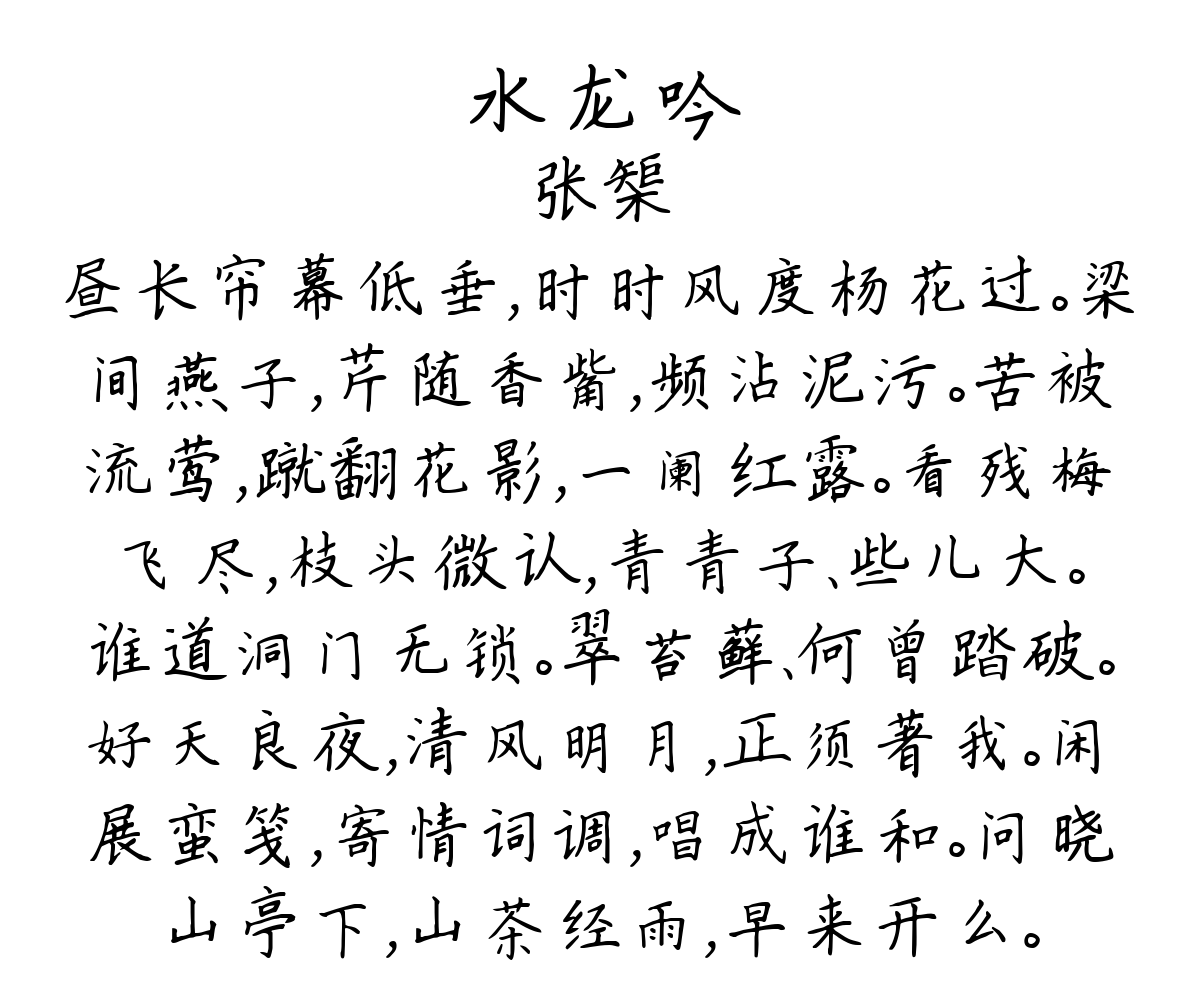 水龙吟
张榘
昼长帘幕低垂,时时风度杨花过。梁
间燕子,芹随香觜,频沾泥污。苦被
流莺,蹴翻花影,一阑红露。看残梅
飞尽,枝头微认,青青子、些儿大。
谁道洞门无锁。翠苔藓、何曾踏破。
好天良夜,清风明月,正须著我。闲
展蛮笺,寄情词调,唱成谁和。问晓
山亭下,山茶经雨,早来开么。